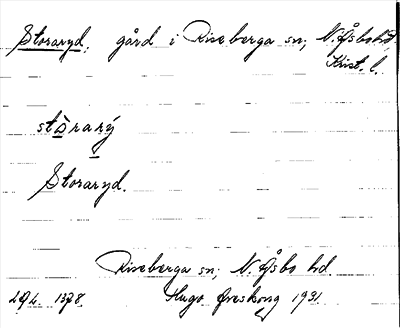 Storaryd, gård i Riseberga sn; N. Åsbo hd.
Krist. l.
stòrarý
Storaryd.
Riseberga sn; N. Åsbo hd.
1378. Hugo Areskoug 1931